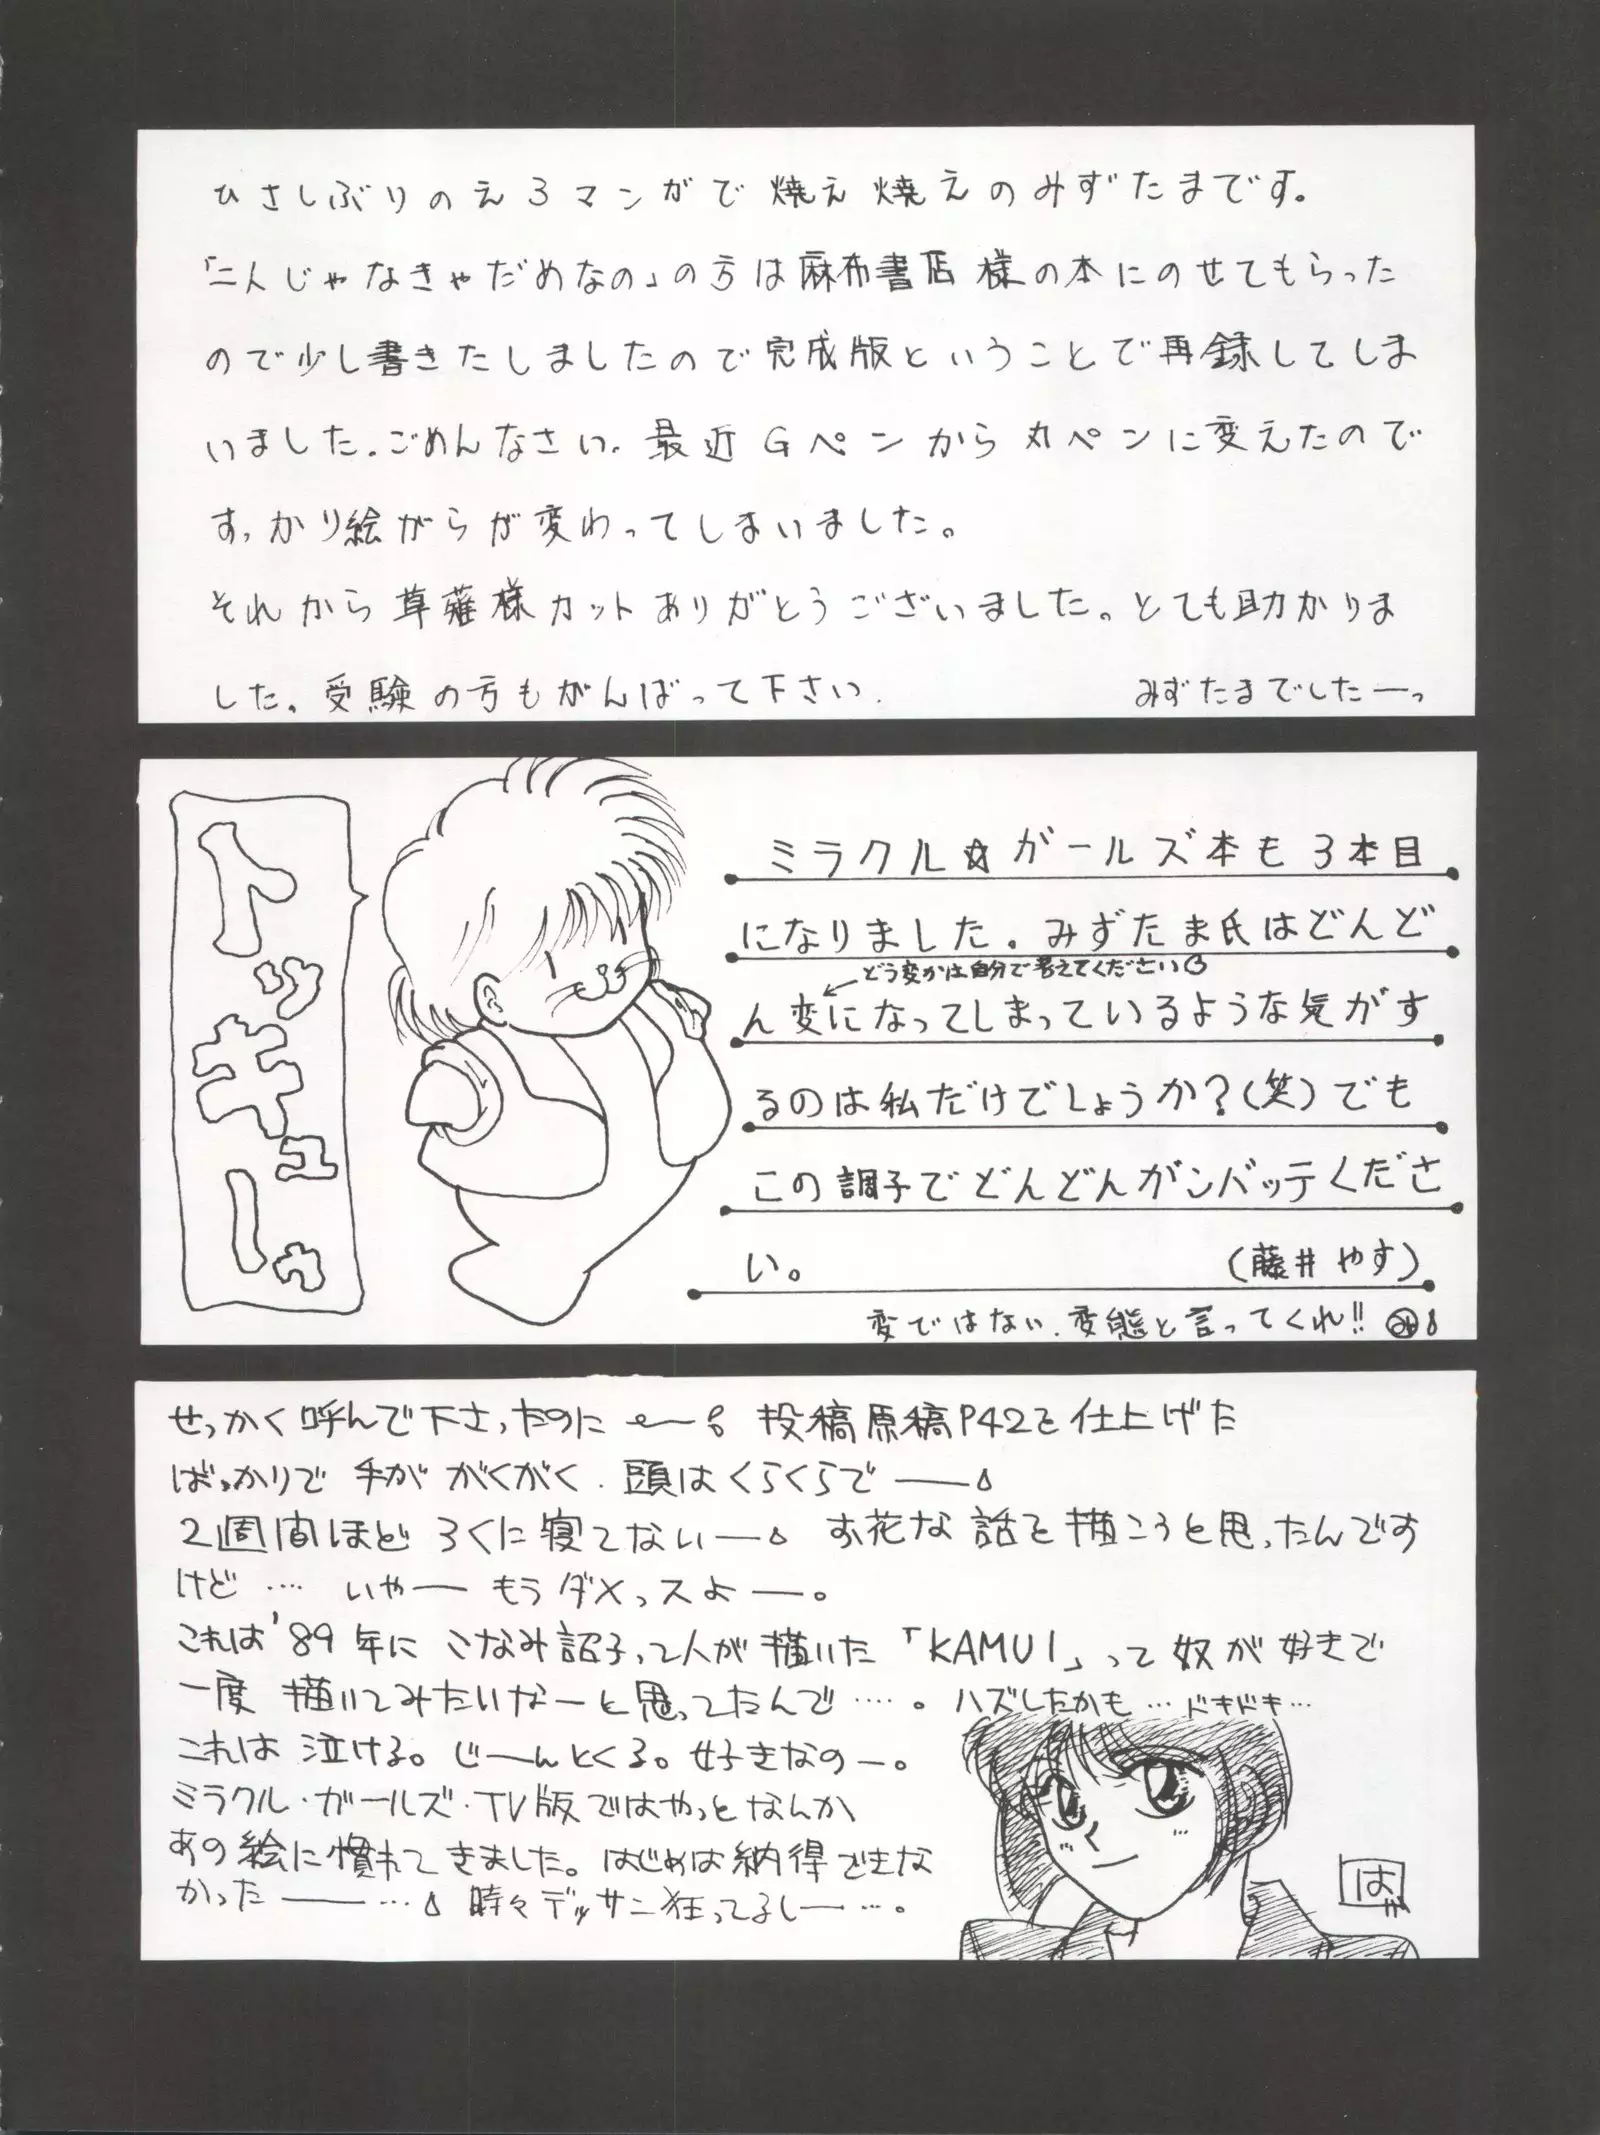 ひさしぶりのえろマンガで燃え燃えのみずたまです。
「二人じゃなきゃだめなの」の方は麻布書店様の本にのせてもらった
ので少し書きたしましたので完成版ということで再録してしま
いました。ごめんなさい。最近Gペンから丸ペンに変えたので
すっかり絵がらが変わってしまいました。
それから草薙様カットありがとうございました。とても助かりま
した。受験の方もがんばって下さい。
みずたまでしたーっ
トッキューゥ
ミラクル☆ガールズ本も3本目
になりました。みずたま氏はどんど
どう変かは自分で考えてください
ん変になってしまっているような気がす
るのは私だけでしょうか?(笑)でも
この調子でどんどんガンバッテくださ
い。 (藤井やす)
変ではない、変態と言ってくれ!!
せっかく呼んで下さったのに 投稿原稿P42を仕上げた
ばっかりで 手が がくがく、頭はくらくらで――
2週間ほど ろくに寝てない― お花な話を描こうと思ったんです
けど…. いやー もうダメっスよー。
これは'89年に こなみ詔子って人が描いた「KAMUI」って奴が好きで
一度 描いてみたいなーと思ってたんで…‥。ハズしたかも…ドキドキ…
これは泣ける。じーんとくる。好きなのー。
ミラクル・ガールズ・TV版ではやっとなんか
あの絵に慣れてきました。はじめは納得できな
かった――… 時々デッサン狂ってるしー…。
は